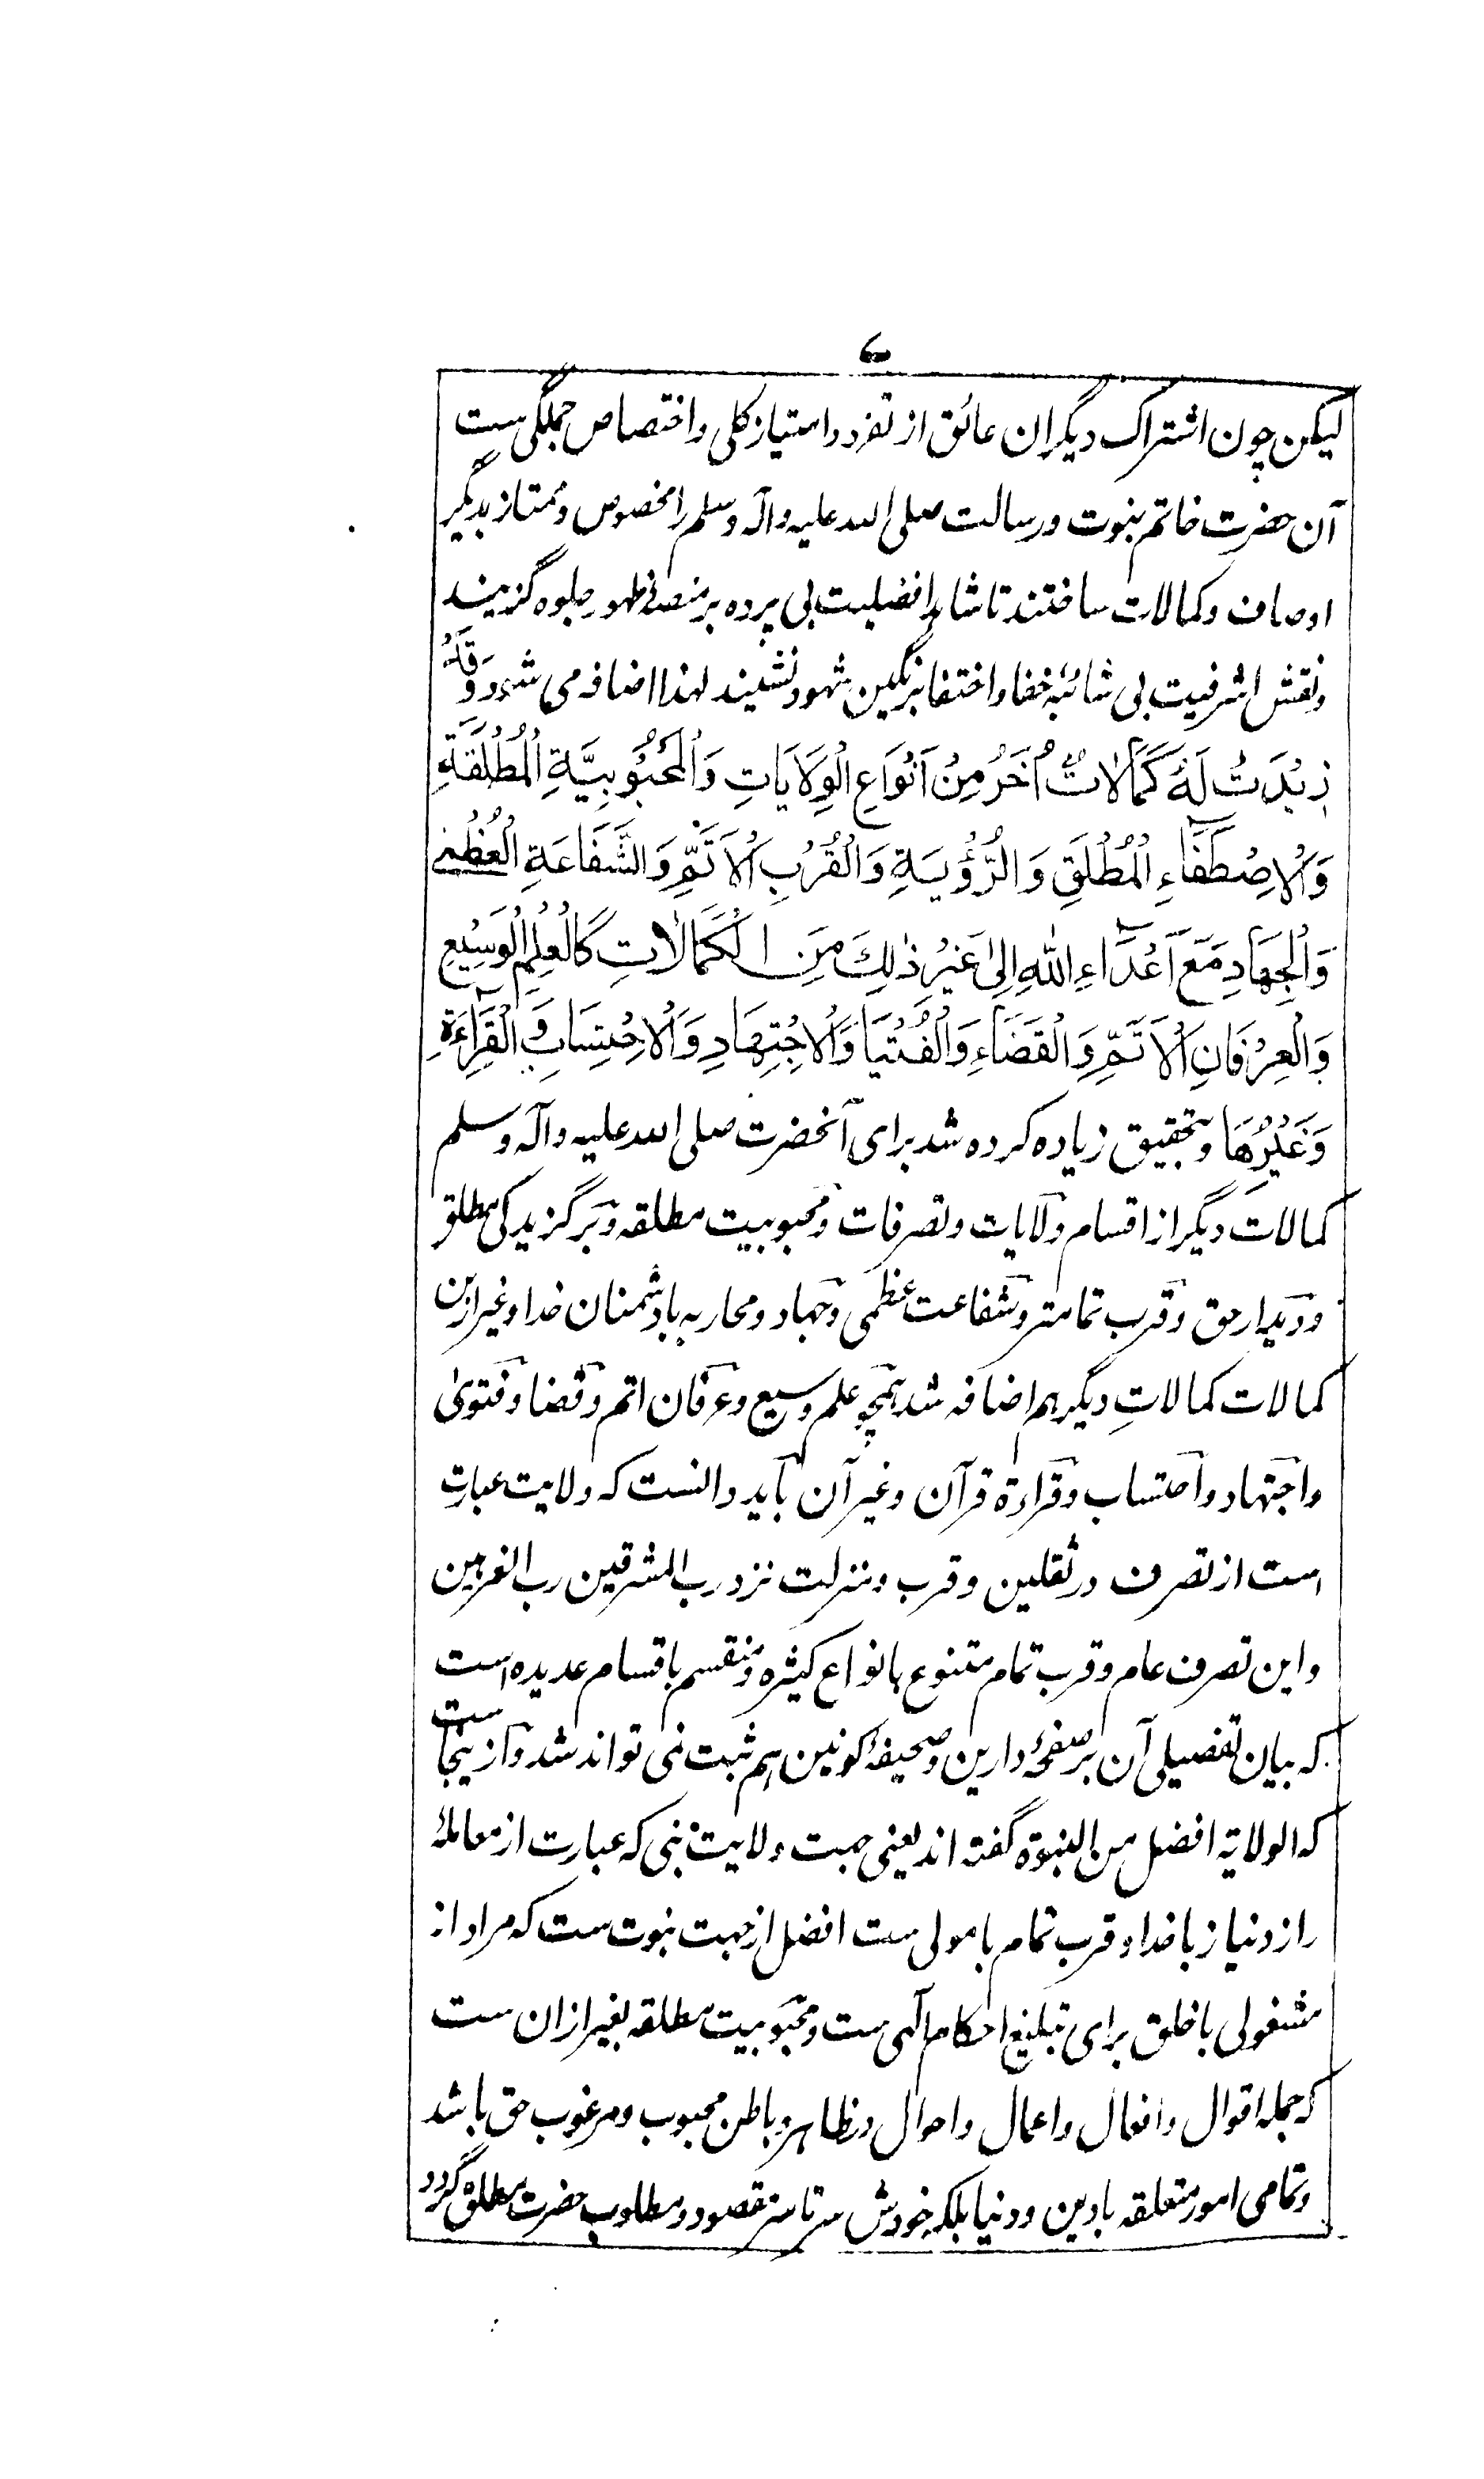 ۷
لیکن چون اشتراک دیگران عائق از تفرد و امتیاز کلی و اختصاص جملگی ست
آن حضرت خاتم نبوت و رسالت صلی الله علیه و آله و سلم را مخصوص و ممتاز بدیگر
اوصاف و کمالات ساختند تا شاهد افضلیت بی پرده بر منصهٔ ظهور جلوه گزیند
و نقش اشرفیت بی شائبه خفا و اختفا بر نگین شهود نشیند لهذا اضافه می شود وَقَدْ
زِيْدَتْ لَهُ كَمَالَاتٌ اُخَرُ مِنْ اَنْوَاعِ الْوِلَايَاتِ وَالْمَحْبُوْبِيَّةِ الْمُطْلَقَةِ
وَالْاِصْطَفَاءِ الْمُطْلَقِ وَالرُّؤْيَةِ وَالْقُرْبِ الْاَتَمِّ وَالشَّفَاعَةِ الْعُظْمٰى
وَالْجِهَادِ مَعَ اَعْدَاءِ اللهِ اِلىٰ غَيْرِ ذٰلِكَ مِنَ الْكَمَالَاتِ كَالْعِلْمِ الْوَسِيْعِ
وَالْعِرْفَانِ الْاَتَمِّ وَالْقَضَاءِ وَالْفُتْيَا وَالْاِجْتِهَادِ وَالْاِحْتِسَابِ وَالْقِرَاءَةِ
وَغَيْرِهَا و بتحقیق زیاده کرده شد برای آنحضرت صلی الله علیه و آله و سلم
کمالات دیگر از اقسام ولایات و تصرفات و محبوبیت مطلقه و برگزیدگی مطلق
و دیدار حق و قرب تمامتر و شفاعت عظمی و جهاد و محاربه با دشمنان خدا و غیر ازین
کمالات کمالاتِ دیگر هم اضافه شد همچو علم وسیع و عرفان اتم و قضا و فتویٰ
و اجتهاد و احتساب و قراءة قرآن و غیر آن باید دانست که ولایت عبارت
است از تصرف در ثقلین و قرب و منزلت نزد رب المشرقین رب المغربین
و این تصرف عام و قرب تمام متنوع بانواع کثیره و منقسم باقسام عدیده است
که بیان تفصیلی آن بر صفحهٔ دارین و صحیفهٔ کونین هم ثبت نمی تواند شد و از ینجا ست
که الولایة افضل من النبوة گفته اند یعنی جهت ولایت نبی که عبارت از معاملهٔ
راز و نیاز با خدا و قرب تمام با مولی ست افضل از جهت نبوت ست که مراد از
مشغولی با خلق برای تبلیغ احکام الهی ست و محبوبیت مطلقه بغیر ازان ست
که جمله اقوال و افعال و اعمال و احوال و ظاهر و باطن محبوب و مرغوب حق باشد
و تمامی امور متعلقه با دین و دنیا بلکه خودش سرتاسر مقصود و مطلوب حضرت مطلق گردد